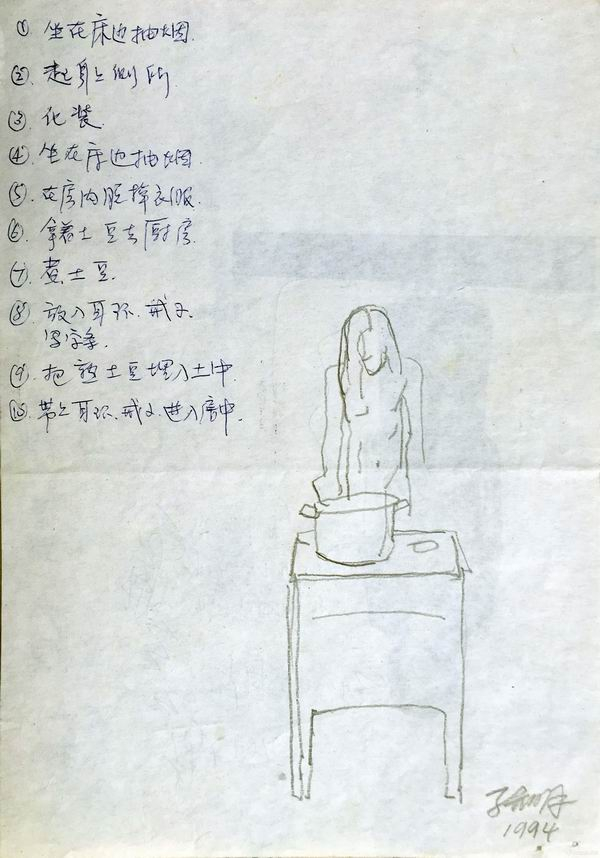 ① 坐在床边抽烟.
② 起身上侧所.
③ 化装.
④ 坐在床边抽烟.
⑤ 在房内脱掉衣服.
⑥ 拿着土豆去厨房.
⑦ 煮土豆.
⑧ 放入耳环.戒子.
写字条.
⑨ 把熟土豆埋入土中.
⑩ 带上耳环、戒子进入房中.
1994